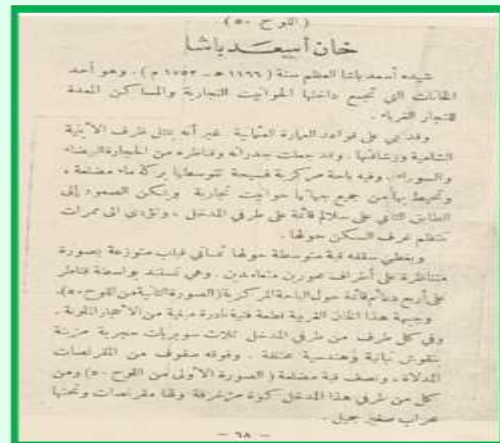 ( اللوح ٥٠ )
خان أسعد باشا
شيده أسعد باشا العظم سنة ( ١١٦٦ هـ - ١٧٥٢ م ) . وهو أحد
الخانات التي تجمع داخلها الحوانيت التجارية والمساكن المعدة
للتجار الغرباء .
وقد بني على قواعد العمارة العثمانية غير أنه يتلى ظرف الأبنية
الشامية ورشاقتها . وقد جعلت جدرانه وقناطره من الحجارة البيضاء
والسوداء . وفيه باحة مركزية فسيحة تتوسطها بركة ماء مضلعة ،
وتحيط بها من جميع جهاتها حوانيت تجارية ويمكن الصعود إلى
الطابق الثاني على سلالم قائمة على طرفي المدخل ، وتؤدي الى ممرات
تنتظم غرف السكن حولها .
ويغطي سقفه قبة متوسطة حولها ثماني قباب متوزعة بصورة
متناظرة على أطراف محورين متعامدين . وهي تستند بواسطة قناطر
على أربع دعائم قائمة حول الباحة المركزية ( الصورة الثانية من اللوح ٥٠ ) .
وجبهة هذا الخان الغربية قطعة فنية نادرة مبنية من الأحجار الملونة .
وفي كل طرف من طرفي المدخل ثلاث سويريات حجرية مزينة
بنقوش نباتية وهندسية مختلفة . وفوقه سقوف من المقرنصات
المدلاة ، ونصف قبة مضلعة ( الصورة الأولى من اللوح ٥٠ ) ومن
كل من طرفي هذا المدخل كوة مزخرفة ولها مقرنصات وتحتها
محراب صغير جميل .
- ٦٨ -